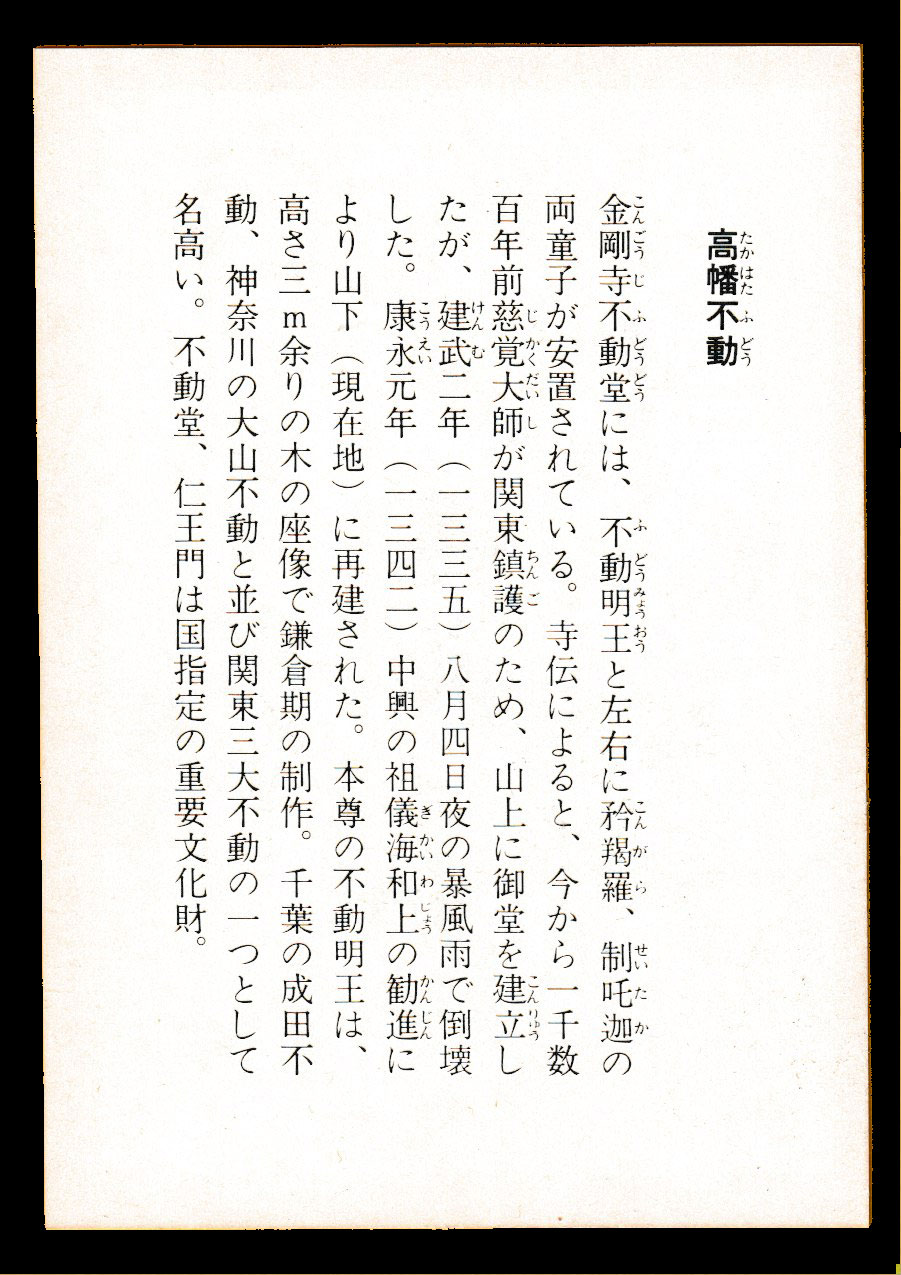 高幡不動
金剛寺不動堂には、不動明王と左右に矜羯羅、制吒迦の
両童子が安置されている。寺伝によると、今から一千数
百年前慈覚大師が関東鎮護のため、山上に御堂を建立し
たが、建武二年（一三三五）八月四日夜の暴風雨で倒壊
した。康永元年（一三四二）中興の祖儀海和上の勧進に
より山下（現在地）に再建された。本尊の不動明王は、
高さ三m余りの木の座像で鎌倉期の制作。千葉の成田不
動、神奈川の大山不動と並び関東三大不動の一つとして
名高い。不動堂、仁王門は国指定の重要文化財。